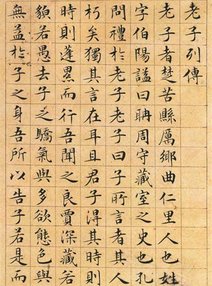 老子列傳
老子者楚苦縣厲鄉曲仁里人也姓
字伯陽謚曰聃周守藏室之史也孔
問禮於老子曰子所言者其人
朽矣獨其言在耳且君子得其時則
時則蓬累而行吾聞之良賈深藏若
貌若愚去子之驕氣與多欲態色與
無益於子之身吾所以告子若是而